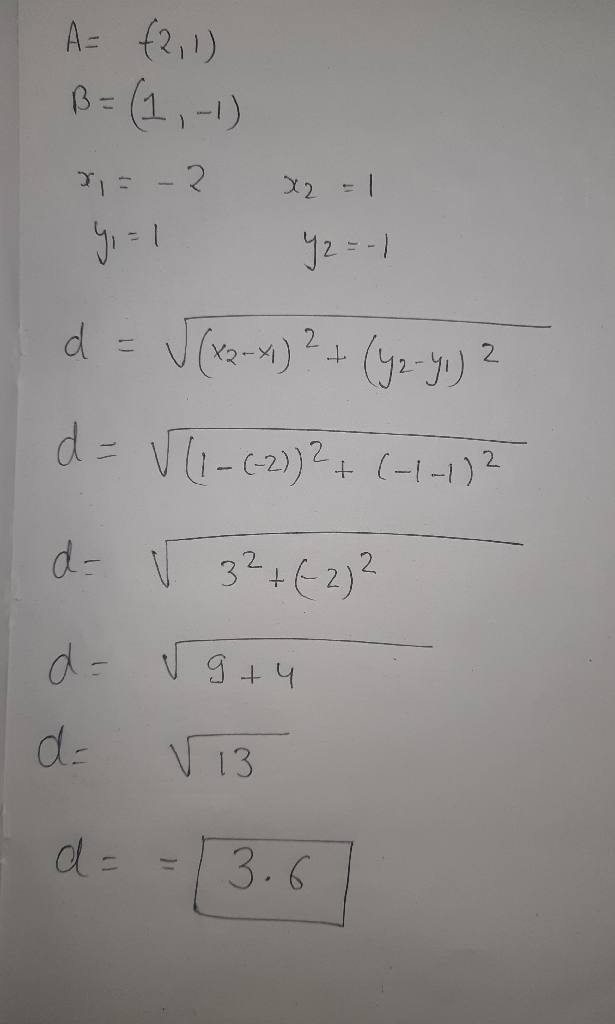 A= (-2,1)
B=(1,-1)
x₁ = -2 x₂ = 1
y₁ = 1 y₂ = -1
d = √(x₂-x₁)² + (y₂-y₁)²
d = √(1-(-2))² + (-1-1)²
d= √3²+(-2)²
d= √9+4
d= √13
d= = 3.6